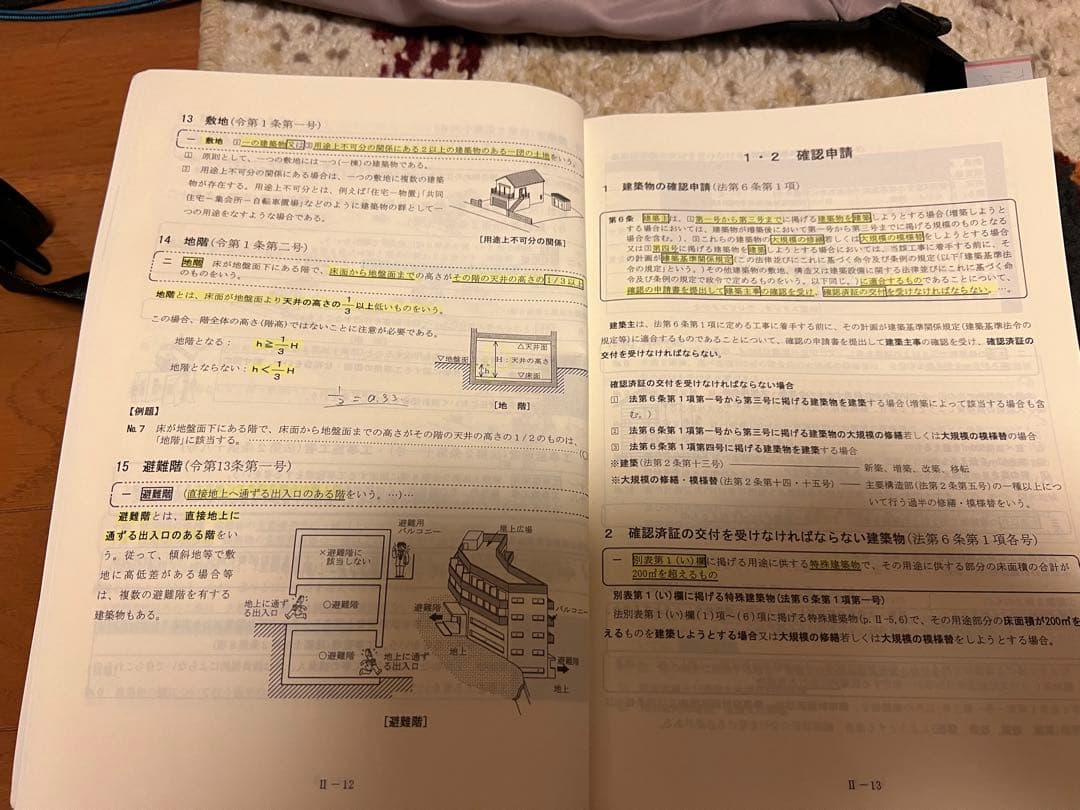 13 敷地(令第1条第一号)
一 敷地 ①一の建築物又は②用途上不可分の関係にある2以上の建築物のある一団の土地をいう。
① 原則として、一つの敷地には一つ(一棟)の建築物である。
② 用途上不可分の関係にある場合は、一つの敷地に複数の建築
物が存在する。用途上不可分とは、例えば「住宅－物置」「共同
住宅－集会所－自転車置場」などのように建築物の群として一
つの用途をなすような場合である。
[用途上不可分の関係]
14 地階(令第1条第二号)
二 地階 床が地盤面下にある階で、床面から地盤面までの高さがその階の天井の高さの1/3以上
のものをいう。
地階とは、床面が地盤面より天井の高さの1/3以上低いものをいう。
この場合、階全体の高さ(階高)ではないことに注意が必要である。
地階となる： h≧1/3H
地階とならない： h<1/3H
△天井面
▽地盤面
H：天井の高さ
h
▽床面
[地 階]
1/3=0.33
【例題】
№7 床が地盤面下にある階で、床面から地盤面までの高さがその階の天井の高さの1/2のものは、
「地階」に該当する。
15 避難階(令第13条第一号)
一 避難階 (直接地上へ通ずる出入口のある階をいう。…)…
避難階とは、直接地上に
通ずる出入口のある階をい
う。従って、傾斜地等で敷
地に高低差がある場合等
は、複数の避難階を有する
建築物もある。
避難用
バルコニー
×避難階に
該当しない
地上に通ず
る出入口
○避難階
○避難階
地上に通ず
る出入口
屋上広場
バルコニー
避難階
地上
避難階
地上
[避難階]
Ⅱ－12
1・2 確認申請
1 建築物の確認申請(法第6条第1項)
第6条 建築主は、①第一号から第三号までに掲げる建築物を建築しようとする場合(増築しようと
する場合においては、建築物が増築後において第一号から第三号までに掲げる規模のものとなる
場合を含む。)、②これらの建築物の大規模の修繕若しくは大規模の模様替をしようとする場合
又は③第四号に掲げる建築物を建築しようとする場合においては、当該工事に着手する前に、そ
の計画が建築基準関係規定(この法律並びにこれに基づく命令及び条例の規定(以下「建築基準法
令の規定」という。)その他建築物の敷地、構造又は建築設備に関する法律並びにこれに基づく命
令及び条例の規定で政令で定めるものをいう。以下同じ。)に適合するものであることについて、
確認の申請書を提出して建築主事の確認を受け、確認済証の交付を受けなければならない。…。
建築主は、法第6条第1項に定める工事に着手する前に、その計画が建築基準関係規定(建築基準法令の
規定等)に適合するものであることについて、確認の申請書を提出して建築主事の確認を受け、確認済証の
交付を受けなければならない。
確認済証の交付を受けなければならない場合
① 法第6条第1項第一号から第三号に掲げる建築物を建築する場合(増築によって該当する場合も含
む。)
② 法第6条第1項第一号から第三号に掲げる建築物の大規模の修繕若しくは大規模の模様替の場合
③ 法第6条第1項第四号に掲げる建築物を建築する場合
※建築(法第2条第十三号) 新築、増築、改築、移転
※大規模の修繕・模様替(法第2条第十四・十五号) 主要構造部(法第2条第五号)の一種以上につ
いて行う過半の修繕・模様替をいう。
2 確認済証の交付を受けなければならない建築物(法第6条第1項各号)
一 別表第1(い)欄に掲げる用途に供する特殊建築物で、その用途に供する部分の床面積の合計が
200㎡を超えるもの
別表第1(い)欄に掲げる特殊建築物(法第6条第1項第一号)
法別表第1(い)欄(1)項～(6)項に掲げる特殊建築物(p.Ⅱ-5,6)で、その用途部分の床面積が200㎡を
えるものを建築しようとする場合又は大規模の修繕若しくは大規模の模様替をしようとする場合。
Ⅱ－13